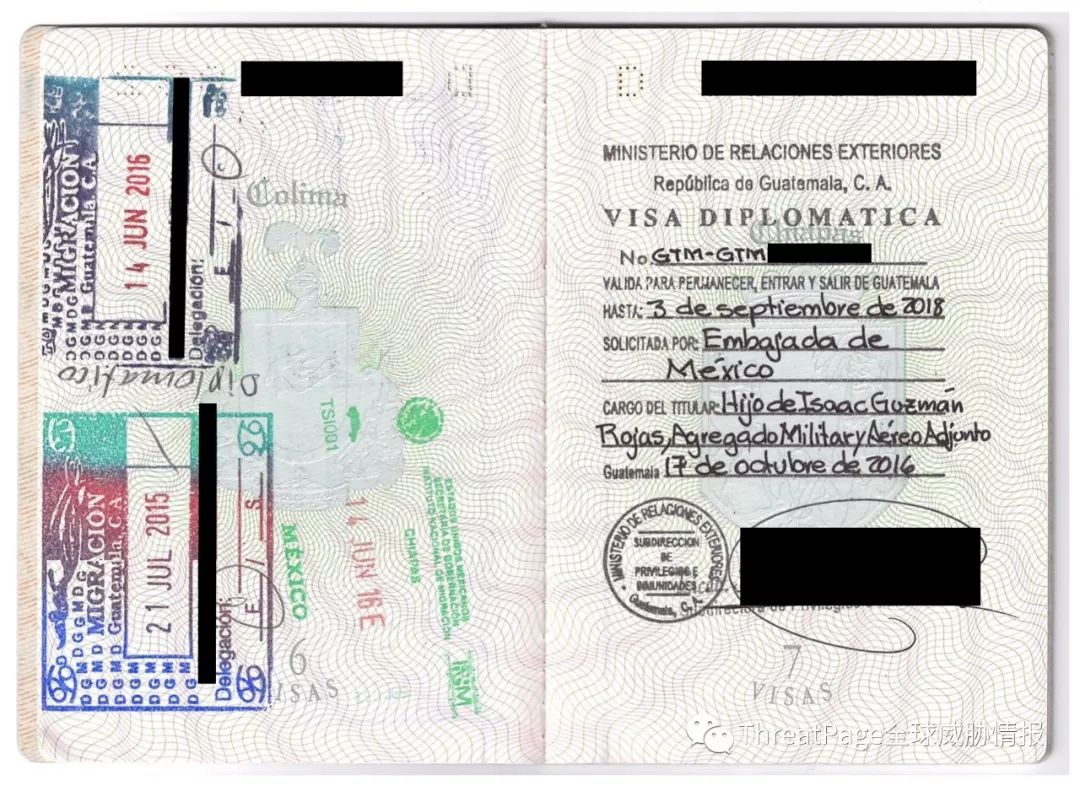 MIGRACION
Guatemala, C.A.
14 JUN 2016
Delegación:
E
Diplomatico
Colima
MIGRACION
Guatemala, C.A.
21 JUL 2015
Delegación:
E / S
TSI001
MÉXICO
14 JUN 16 E
ESTADOS UNIDOS MEXICANOS
SECRETARÍA DE GOBERNACIÓN
INSTITUTO NACIONAL DE MIGRACIÓN
CHIAPAS
6
VISAS
MINISTERIO DE RELACIONES EXTERIORES
República de Guatemala, C. A.
VISA DIPLOMATICA
Chiapas
No. GTM-GTM
VALIDA PARA PERMANECER, ENTRAR Y SALIR DE GUATEMALA
HASTA: 3 de septiembre de 2018
SOLICITADA POR: Embajada de
México
CARGO DEL TITULAR: Hijo de Isaac Guzmán
Rojas, Agregado Militar y Aéreo Adjunto
Guatemala 17 de octubre de 2016
MINISTERIO DE RELACIONES EXTERIORES
SUBDIRECCION
DE
PRIVILEGIOS E
INMUNIDADES
Guatemala, C. A.
7
VISAS
ThreatPage全球威胁情报